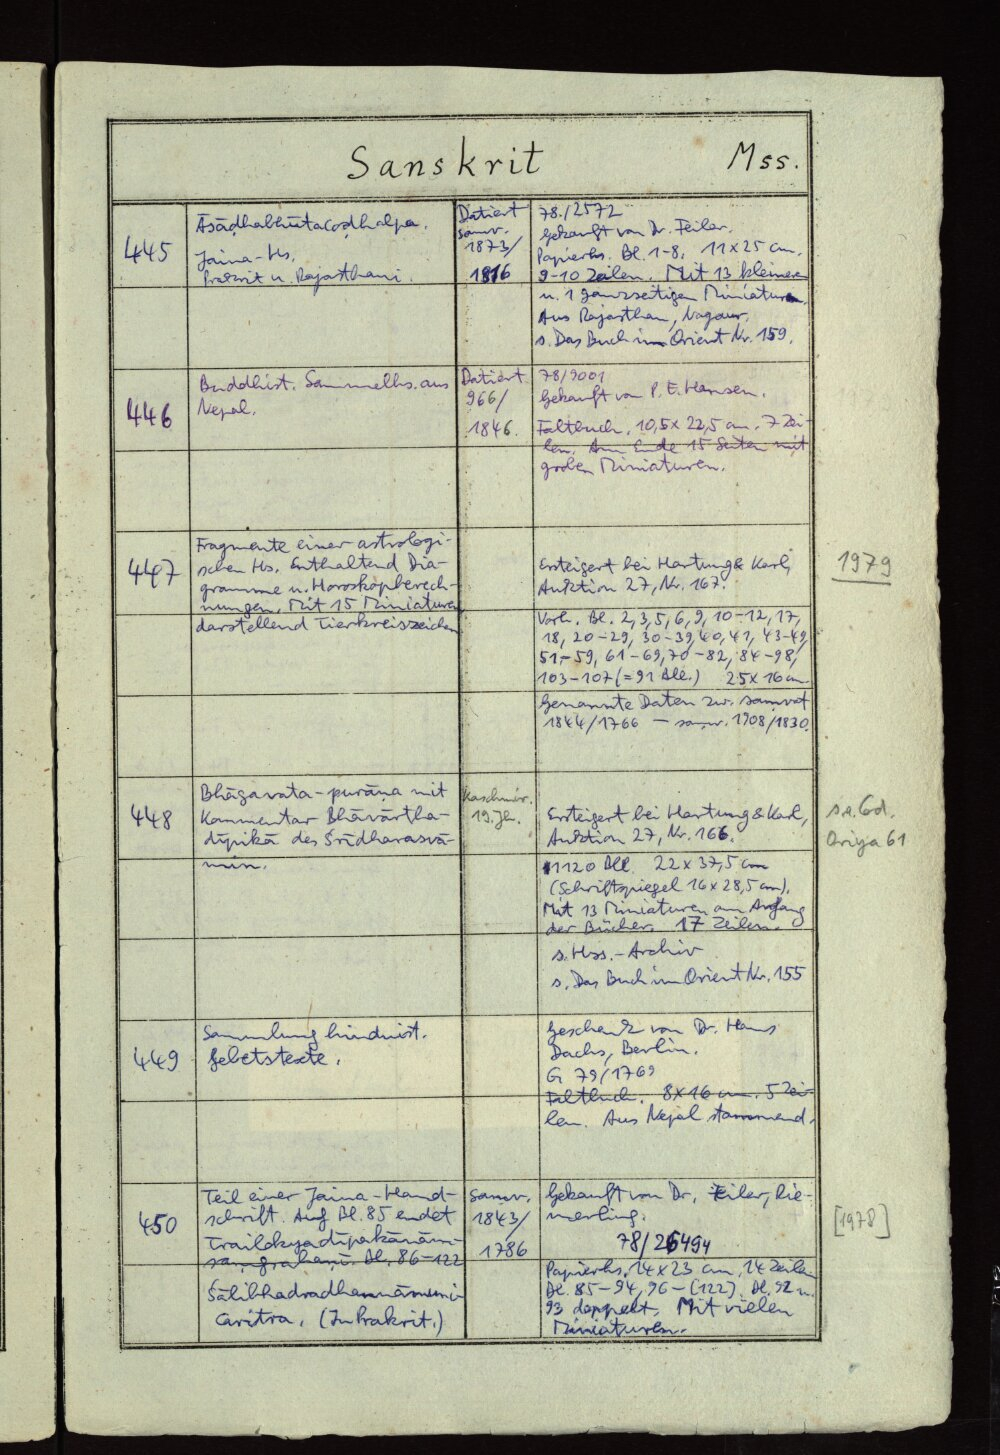 Sanskrit Mss.
445
Āṣāḍhabhūtacoḍhalpa.
Jaina-Hs.
Prakrit u. Rajasthani.
Datiert
samv.
1873/
1816
78./2572
Gekauft von Dr. Feiler.
Papierhs. Bl. 1-8. 11x25 cm.
9-10 Zeilen. Mit 13 kleineren
u. 1 ganzseitigen Miniaturen.
Aus Rajasthan, Nagaur.
s. Das Buch im Orient Nr. 159.
446
Buddhist. Sammelhs. aus
Nepal.
Datiert
966/
1846.
78/9001
Gekauft von P. E. Hansen.
Faltbuch. 10,5x22,5 cm. 7 Zei-
len. Am Ende 15 Seiten mit
groben Miniaturen.
447
Fragmente einer astrologi-
schen Hs. Enthaltend Dia-
gramme u. Horoskopberech-
nungen. Mit 15 Miniaturen
darstellend Tierkreiszeichen
Ersteigert bei Hartung & Karl,
Auktion 27, Nr. 167.
Vorh. Bl. 2, 3, 5, 6, 9, 10-12, 17,
18, 20-29, 30-39, 40, 41, 43-49,
51-59, 61-69, 70-82, 84-98,
103-107 (= 91 Bll.) 25x16 cm.
Genannte Daten zw. samvat
1844/1766 - samv. 1908/1830.
1979
448
Bhāgavata-purāṇa mit
Kommentar Bhāvārtha-
dīpikā des Śrīdharasvā-
min.
Kaschmir.
19. Jh.
Ersteigert bei Hartung & Karl,
Auktion 27, Nr. 166.
1120 Bll. 22x37,5 cm
(Schriftspiegel 16x28,5 cm).
Mit 13 Miniaturen am Anfang
der Bücher. 17 Zeilen.
s. Hss.-Archiv
s. Das Buch im Orient Nr. 155
s.a. Cod.
Oriya 61
449
Sammlung hinduist.
Gebetstexte.
Geschenk von Dr. Hans
Dachs, Berlin.
G 79/1769
Faltbuch. 8x16 cm. 5 Zei-
len. Aus Nepal stammend.
450
Teil einer Jaina-Hand-
schrift. Auf Bl. 85 endet
Trailokyadīpakānām-
saṃgrahaṇī. Bl. 86-122
Śālibhadradhannāmuni-
caritra. (In Prakrit.)
Samv.
1843/
1786
Gekauft von Dr. Feiler, Rie-
merling.
78/26494
Papierhs. 14x23 cm. 14 Zeilen
Bl. 85-94, 96-(122). Bl. 92 u.
93 doppelt. Mit vielen
Miniaturen.
[1978]